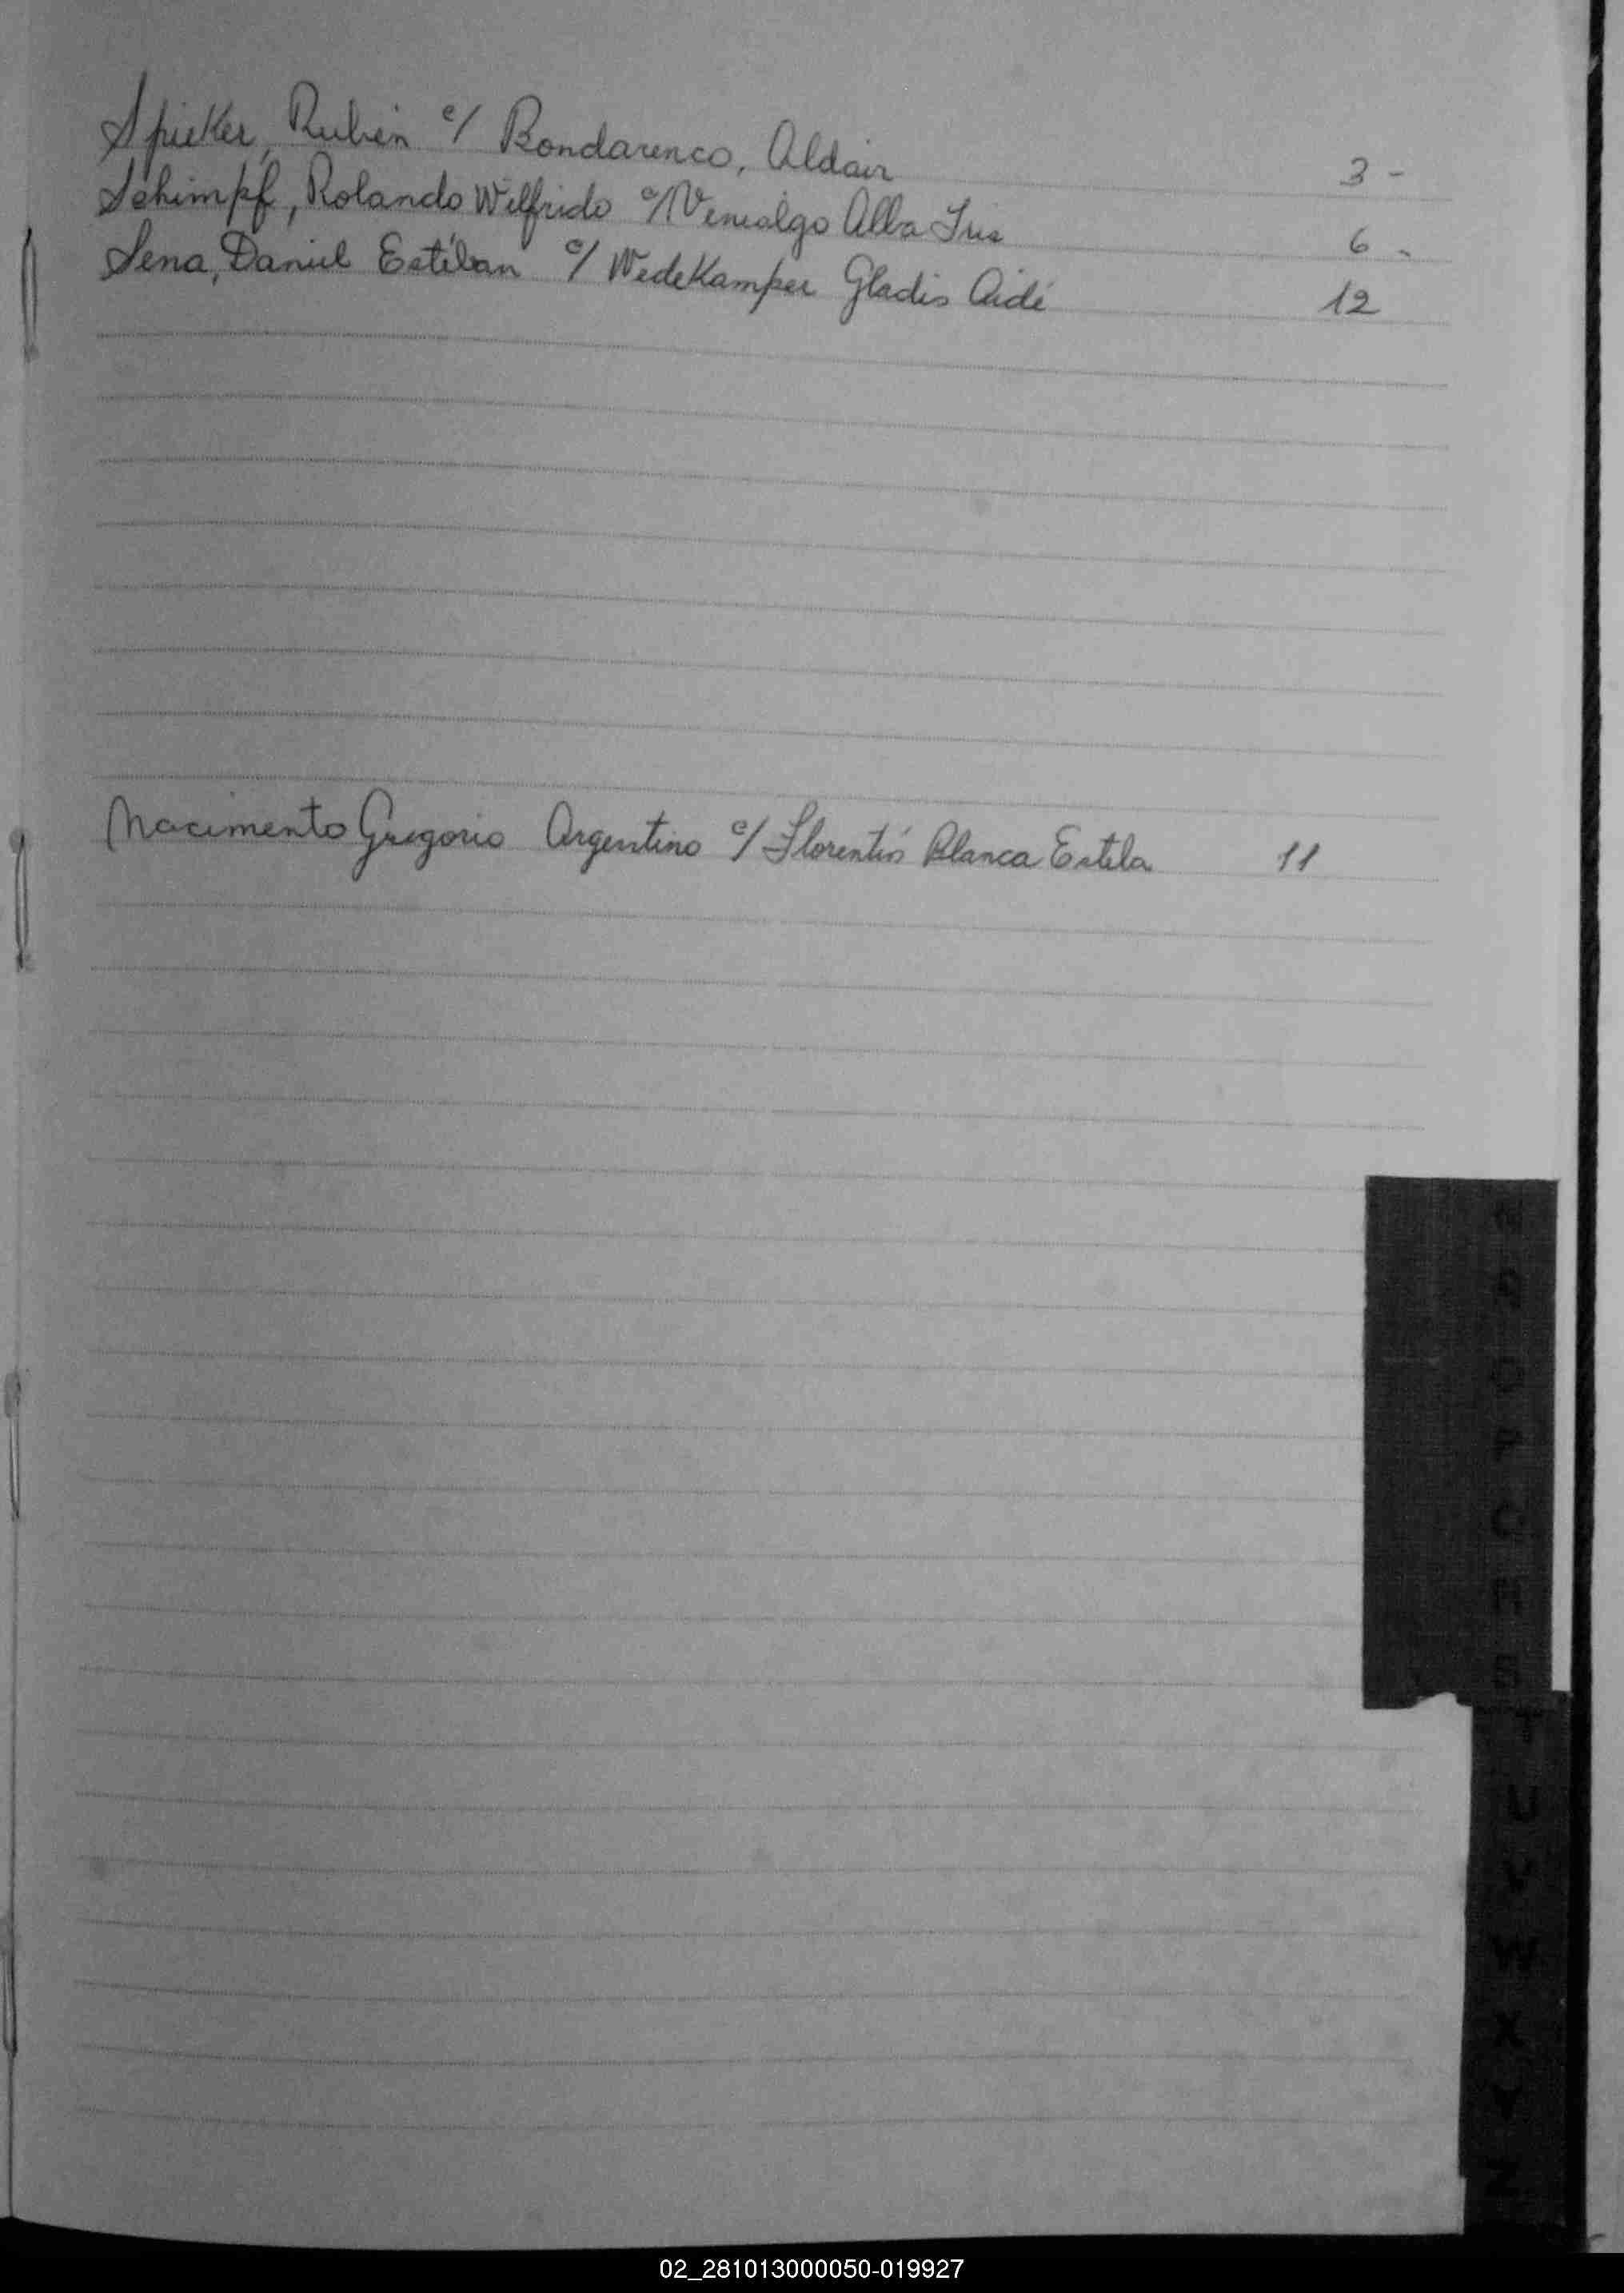 Spieker, Rubén c/ Bondarenco, Aldair 3 -
Schimpf, Rolando Wilfrido c/ Venialgo Alba Iris 6 -
Sena, Daniel Estéban c/ WedeKamper Gladis Aidé 12
Nacimento Gregorio Argentino c/ Florentín Blanca Estela 11
N
O
P
Q
R
S
T
U
V
W
X
Y
Z
02_281013000050-019927